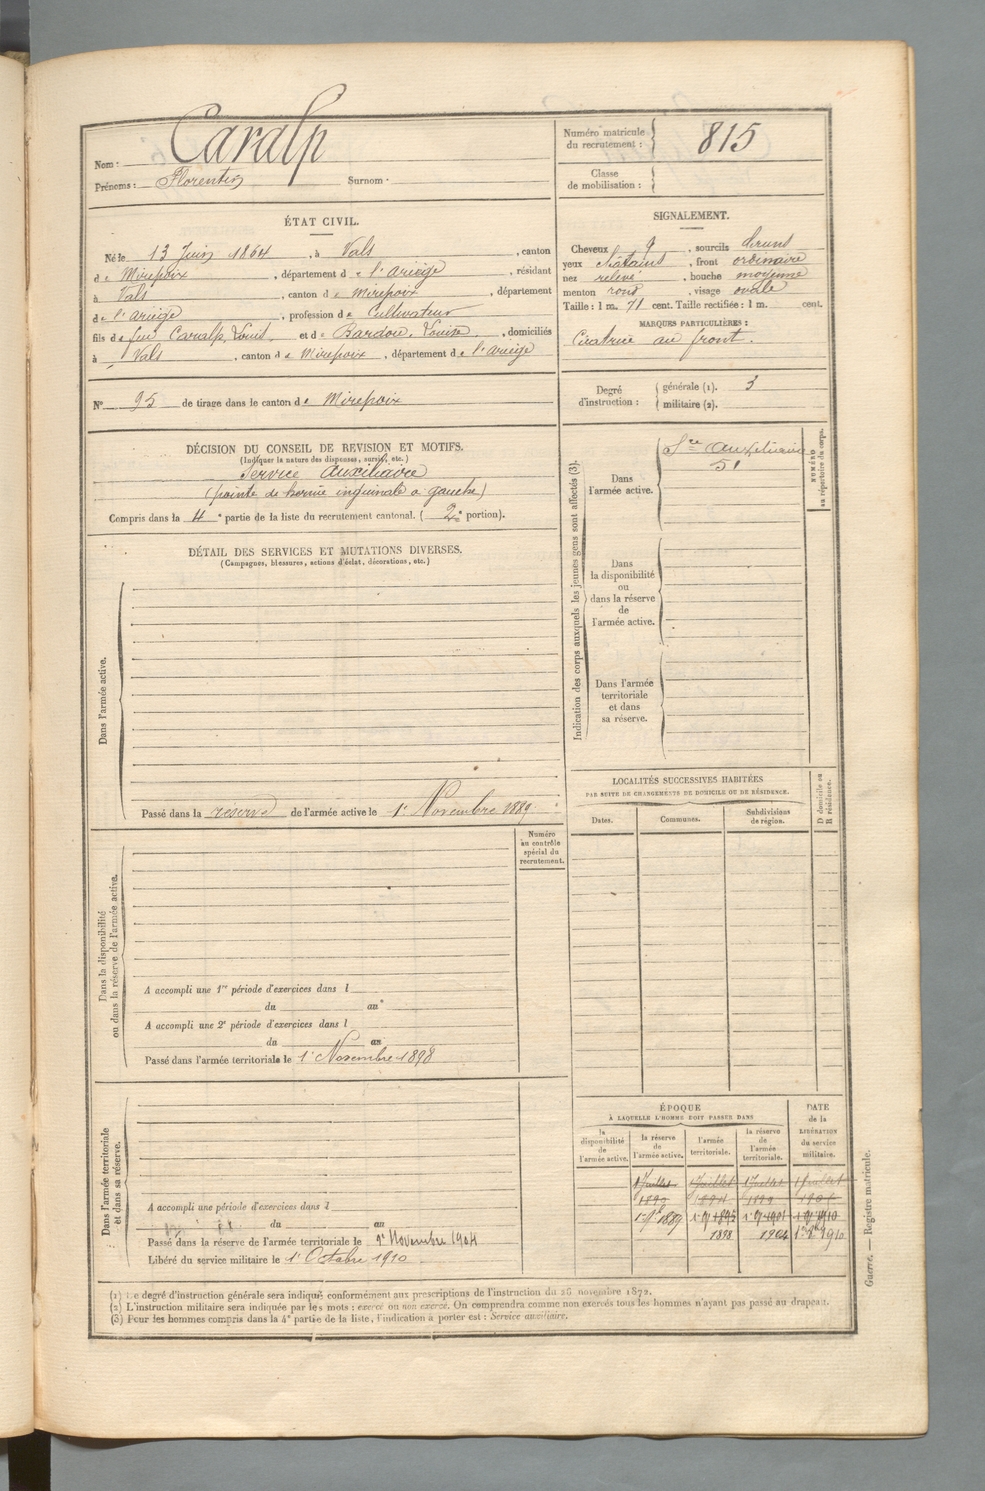 Nom : Caralp
Prénoms : Florentin Surnom :
Numéro matricule du recrutement : 815
Classe de mobilisation :
ÉTAT CIVIL.
Né le 13 Juin 1864, à Vals, canton
de Mirepoix, département de l'Ariège, résidant
à Vals, canton de Mirepoix, département
de l'Ariège, profession de Cultivateur
fils de feu Caralp, Louis et de Bardou, Louise, domiciliés
à Vals, canton de Mirepoix, département de l'Ariège
SIGNALEMENT.
Cheveux , sourcils bruns
yeux chatains, front ordinaire
nez relevé, bouche moyenne
menton rond, visage ovale
Taille : 1 m. 71 cent. Taille rectifiée : 1 m. cent.
MARQUES PARTICULIÈRES :
Cicatrice au front.
N° 95 de tirage dans le canton de Mirepoix
Degré d'instruction : générale (1). 3
militaire (2).
DÉCISION DU CONSEIL DE REVISION ET MOTIFS.
(Indiquer la nature des dispenses, sursis, etc.)
Service Auxiliaire
(pointe de hernie inguinale a gauche)
Compris dans la 4e partie de la liste du recrutement cantonal. ( 2e portion).
DÉTAIL DES SERVICES ET MUTATIONS DIVERSES.
(Campagnes, blessures, actions d'éclat, décorations, etc.)
Dans l'armée active.
Passé dans la réserve de l'armée active le 1er Novembre 1889
Indication des corps auxquels les jeunes gens sont affectés (3).
Dans l'armée active.
Sce Auxiliaire
Dans la disponibilité ou dans la réserve de l'armée active.
Dans l'armée territoriale et dans sa réserve.
NUMÉRO au répertoire du corps.
LOCALITÉS SUCCESSIVES HABITÉES
PAR SUITE DE CHANGEMENTS DE DOMICILE OU DE RÉSIDENCE.
Dates.
Communes.
Subdivisions de région.
D domicile ou R résidence.
Numéro au contrôle spécial du recrutement.
Dans la disponibilité ou dans la réserve de l'armée active.
A accompli une 1re période d'exercices dans l
du au
A accompli une 2e période d'exercices dans l
du au
Passé dans l'armée territoriale le 1er Novembre 1898
Dans l'armée territoriale et dans sa réserve.
A accompli une période d'exercices dans l
du au
Passé dans la réserve de l'armée territoriale le 1er Novembre 1904
Libéré du service militaire le 1er Octobre 1910
ÉPOQUE
À LAQUELLE L'HOMME DOIT PASSER DANS
la disponibilité de l'armée active.
la réserve de l'armée active.
l'armée territoriale.
la réserve de l'armée territoriale.
DATE de la LIBÉRATION du service militaire.
1 Juillet 1 Juillet 1 Juillet 1 Juillet
1889
1898 1904 1910
(1) Le degré d'instruction générale sera indiqué conformément aux prescriptions de l'instruction du 26 novembre 1872.
(2) L'instruction militaire sera indiquée par les mots : exercé ou non exercé. On comprendra comme non exercés tous les hommes n'ayant pas passé au drapeau.
(3) Pour les hommes compris dans la 4e partie de la liste, l'indication à porter est : Service auxiliaire.
Guerre. — Registre matricule.